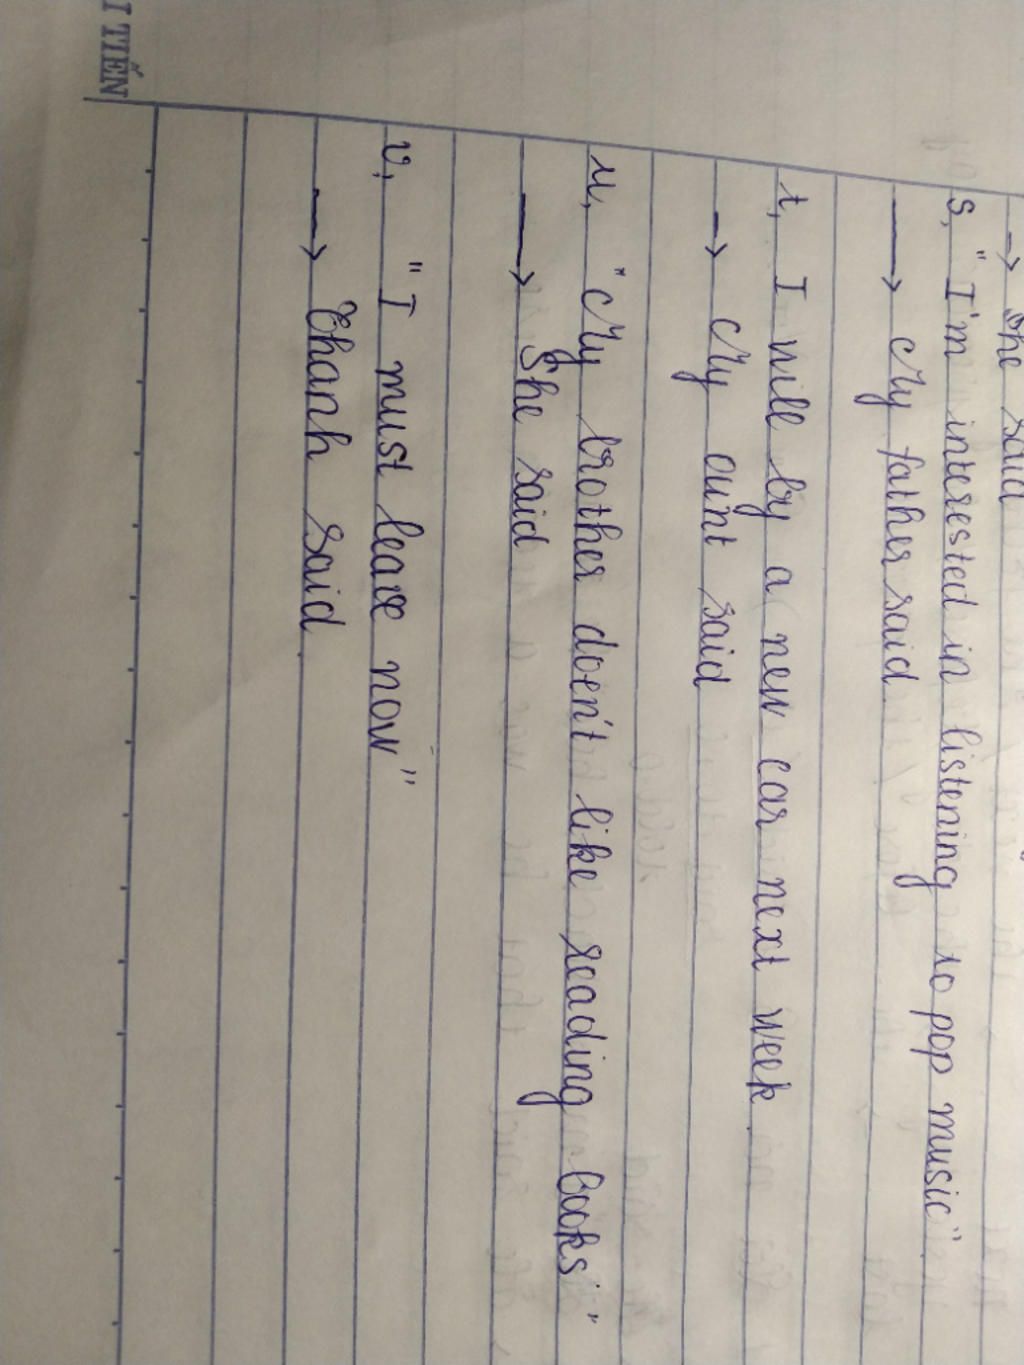 → She said
s, "I'm interested in listening to pop music"
→ My father said
t, I will by a new car next week
→ My aunt said
u, "My brother doen't like reading books"
→ She said
v, "I must leave now"
→ Chanh said
I TIẾN